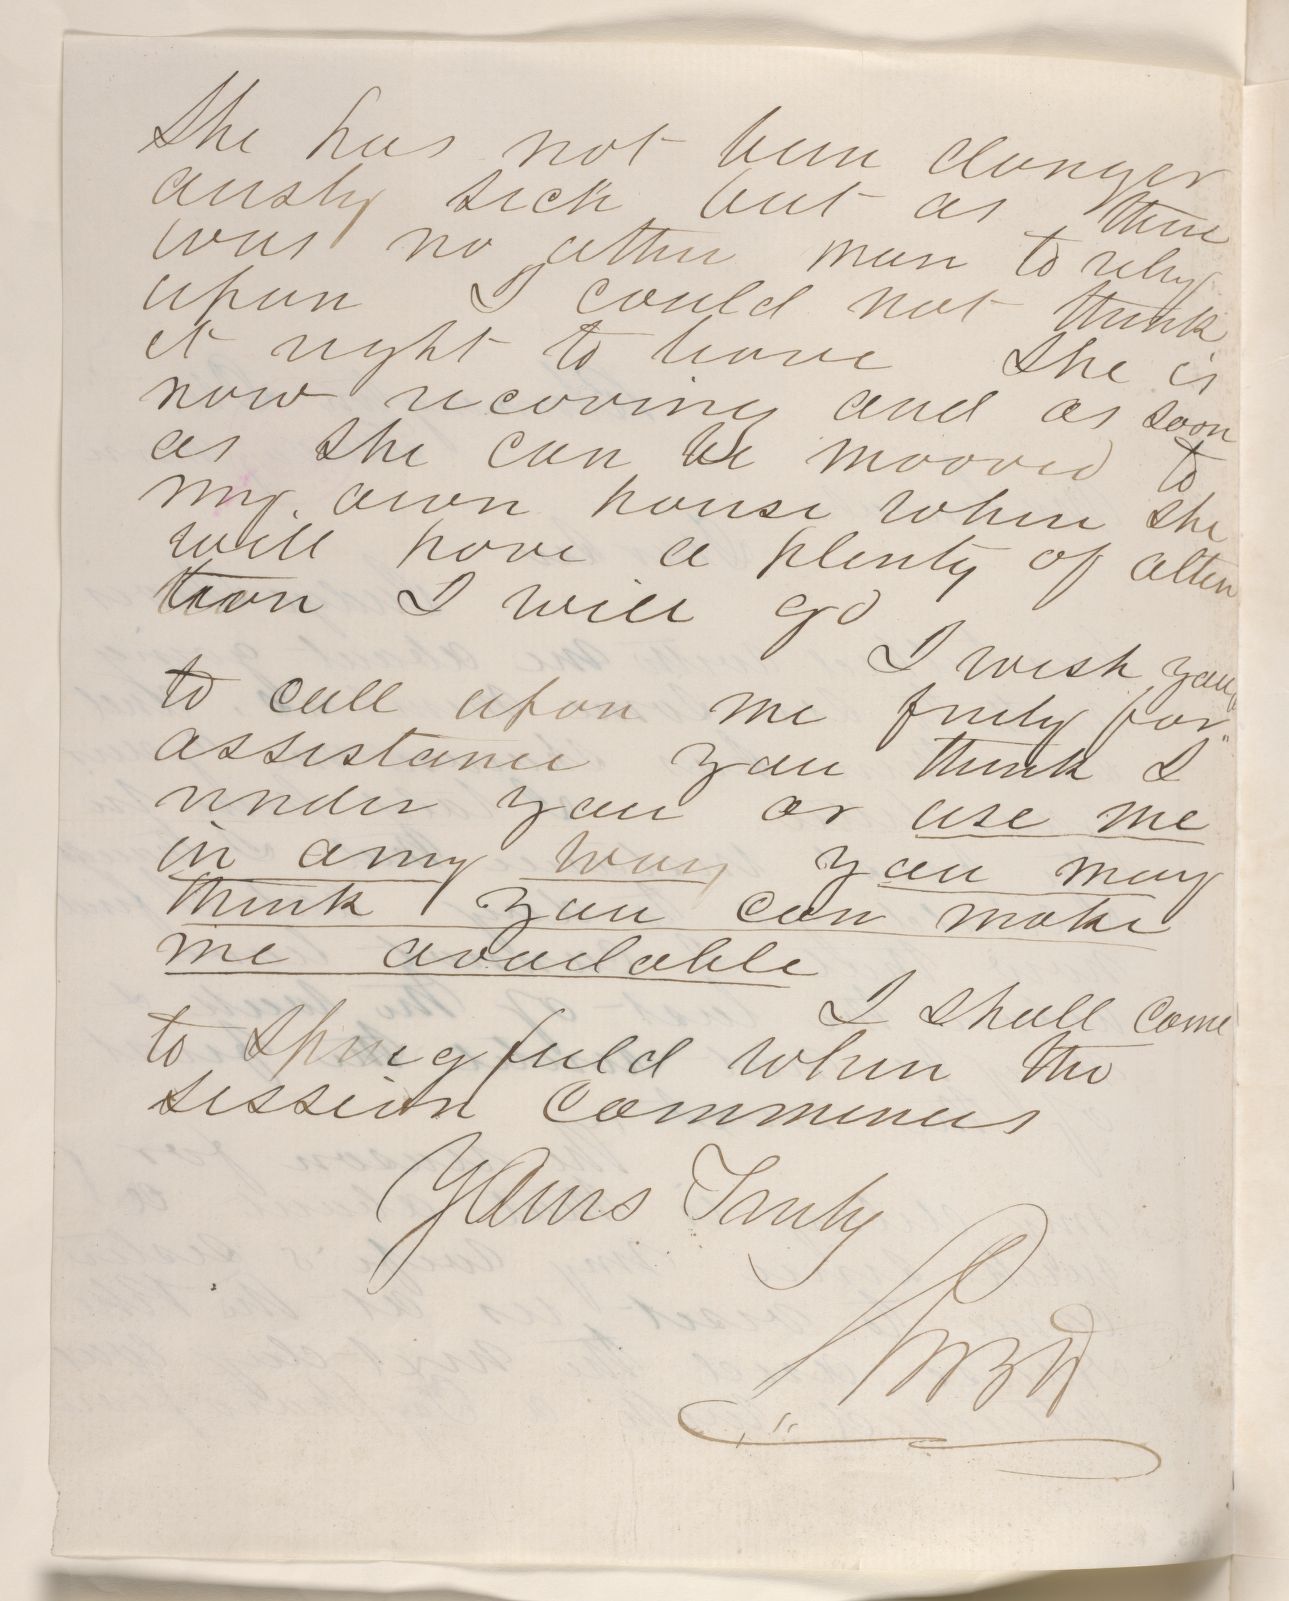 She has not been danger
ously sick but as there
was no other man to rely
upon I could not think
it right to leave She is
now recoving and as soon
as she can be mooved to
my own house when she
will have a plenty of atten
tion I will go
I wish you
to call upon me freely for
assistance you think I
render you or use me
in any way you may
think you can make
me available
I shall come
to Springfield when the
session commences
Yours Truly